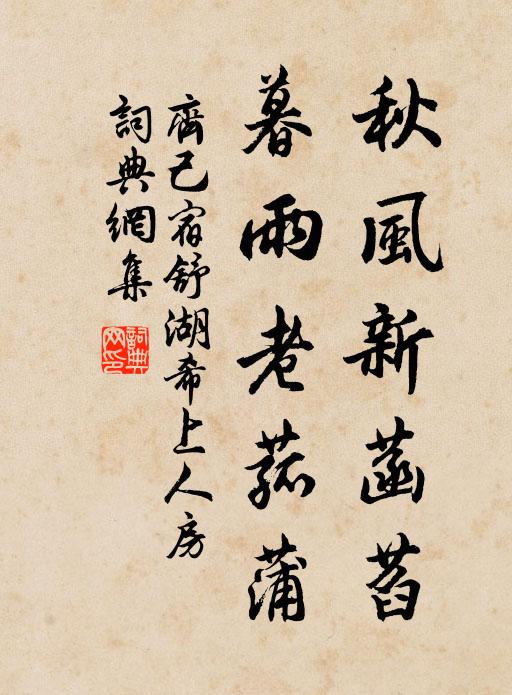 秋風新菡萏
暮雨老菰蒲
齊己宿舒湖希上人房
詞典網集
詞典網印